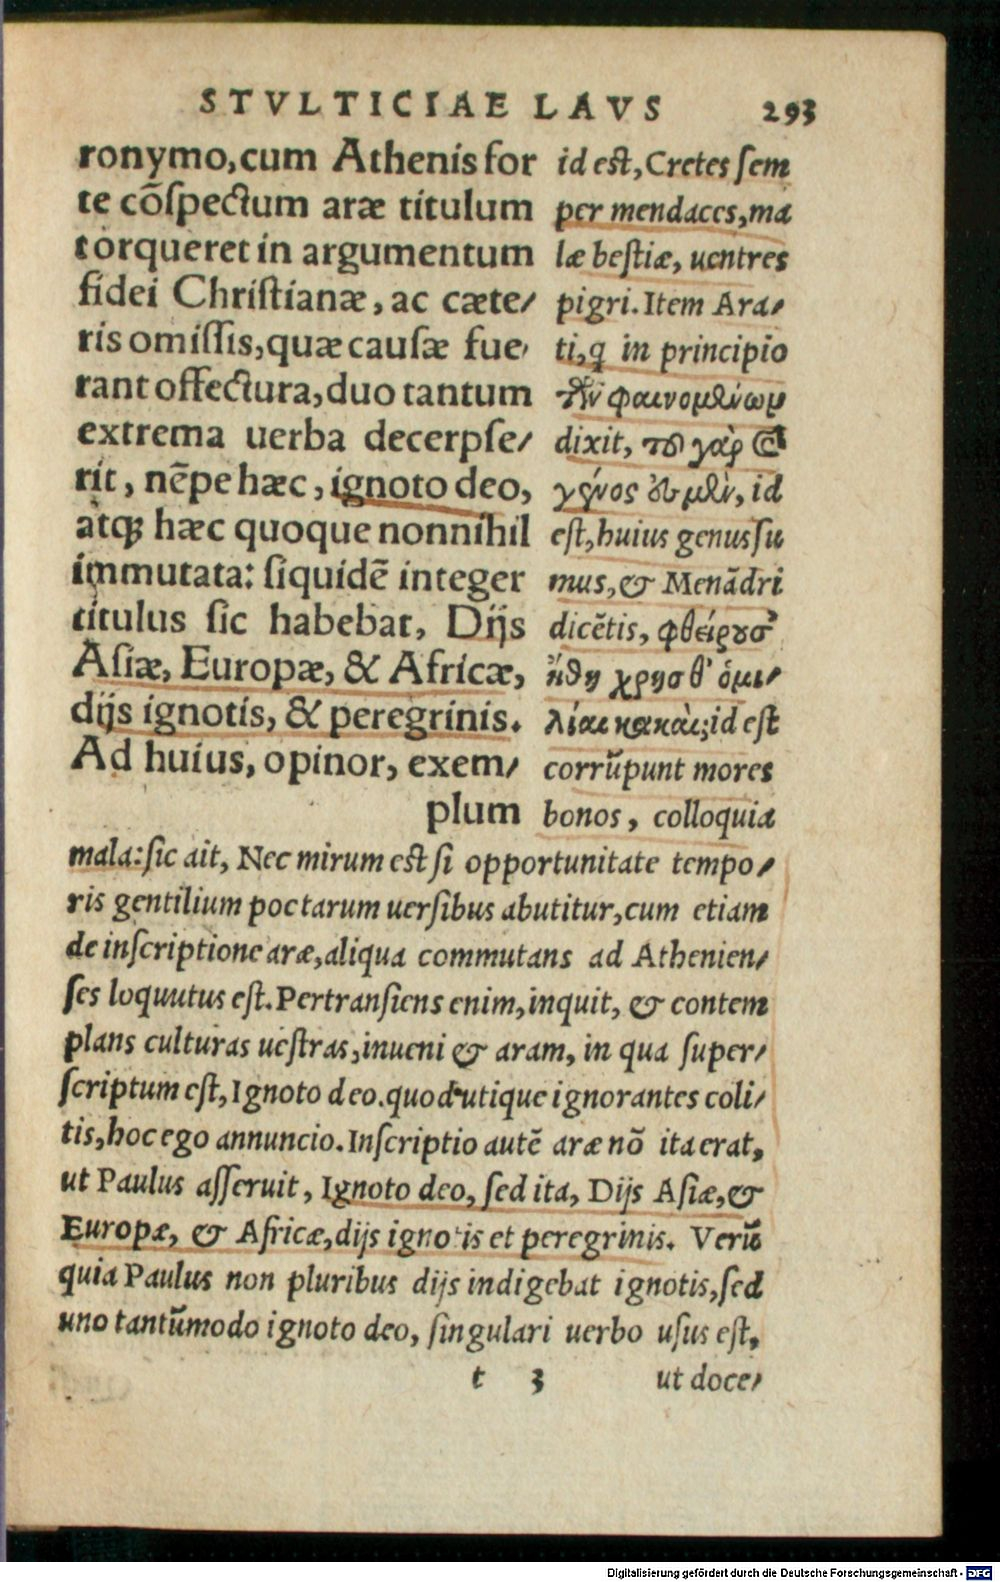 STVLTICIAE LAVS 293
ronymo,cum Athenis for
te cõspectum aræ titulum
torqueret in argumentum
fidei Christianæ, ac cæte/
ris omissis,quæ causæ fue/
rant offectura,duo tantum
extrema uerba decerpse/
rit, nẽpe hæc, ignoto deo,
atq; hæc quoque nonnihil
immutata: siquidẽ integer
titulus sic habebat, Dijs
Asiæ, Europæ, & Africæ,
dijs ignotis, & peregrinis.
Ad huius, opinor, exem/
plum
id est, Cretes sem
per mendaces,ma
læ bestiæ, uentres
pigri. Item Ara/
ti,q in principio
τῶν φαινομένων
dixit, τοῦ γὰρ
γένος ἐσμὲν, id
est,huius genus su
mus,& Menãdri
dicẽtis, φθείρουσ
ἤθη χρησθ' ὁμι/
λίαι κακαὶ; id est
corrũpunt mores
bonos, colloquia
mala: sic ait, Nec mirum est si opportunitate tempo/
ris gentilium poetarum uersibus abutitur,cum etiam
de inscriptione aræ,aliqua commutans ad Athenien/
ses loquutus est. Pertransiens enim,inquit, & contem
plans culturas uestras,inueni & aram, in qua super/
scriptum est, Ignoto deo. quod utique ignorantes coli/
tis,hoc ego annuncio. Inscriptio autẽ aræ nõ ita erat,
ut Paulus asseruit, Ignoto deo, sed ita, Dijs Asiæ,&
Europæ, & Africæ,dijs ignotis et peregrinis. Verũ
quia Paulus non pluribus dijs indigebat ignotis,sed
uno tantũmodo ignoto deo, singulari uerbo usus est,
t 3 ut doce/
Digitalisierung gefördert durch die Deutsche Forschungsgemeinschaft - DFG